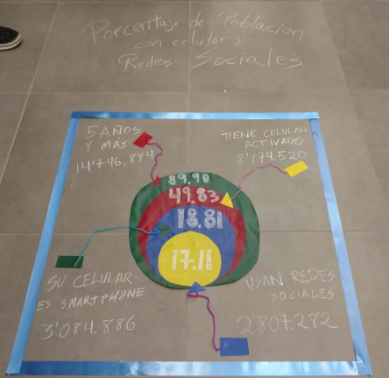 Porcentaje de Poblacion
con celular y
Redes Sociales
5 AÑOS
Y MAS
14'746.884
TIENE CELULAR
ACTIVADO
8'174.520
89.90
49.83
18.81
17.11
SU CELULAR
ES SMARTPHONE
3'084.886
USAN REDES
SOCIALES
2'807.282